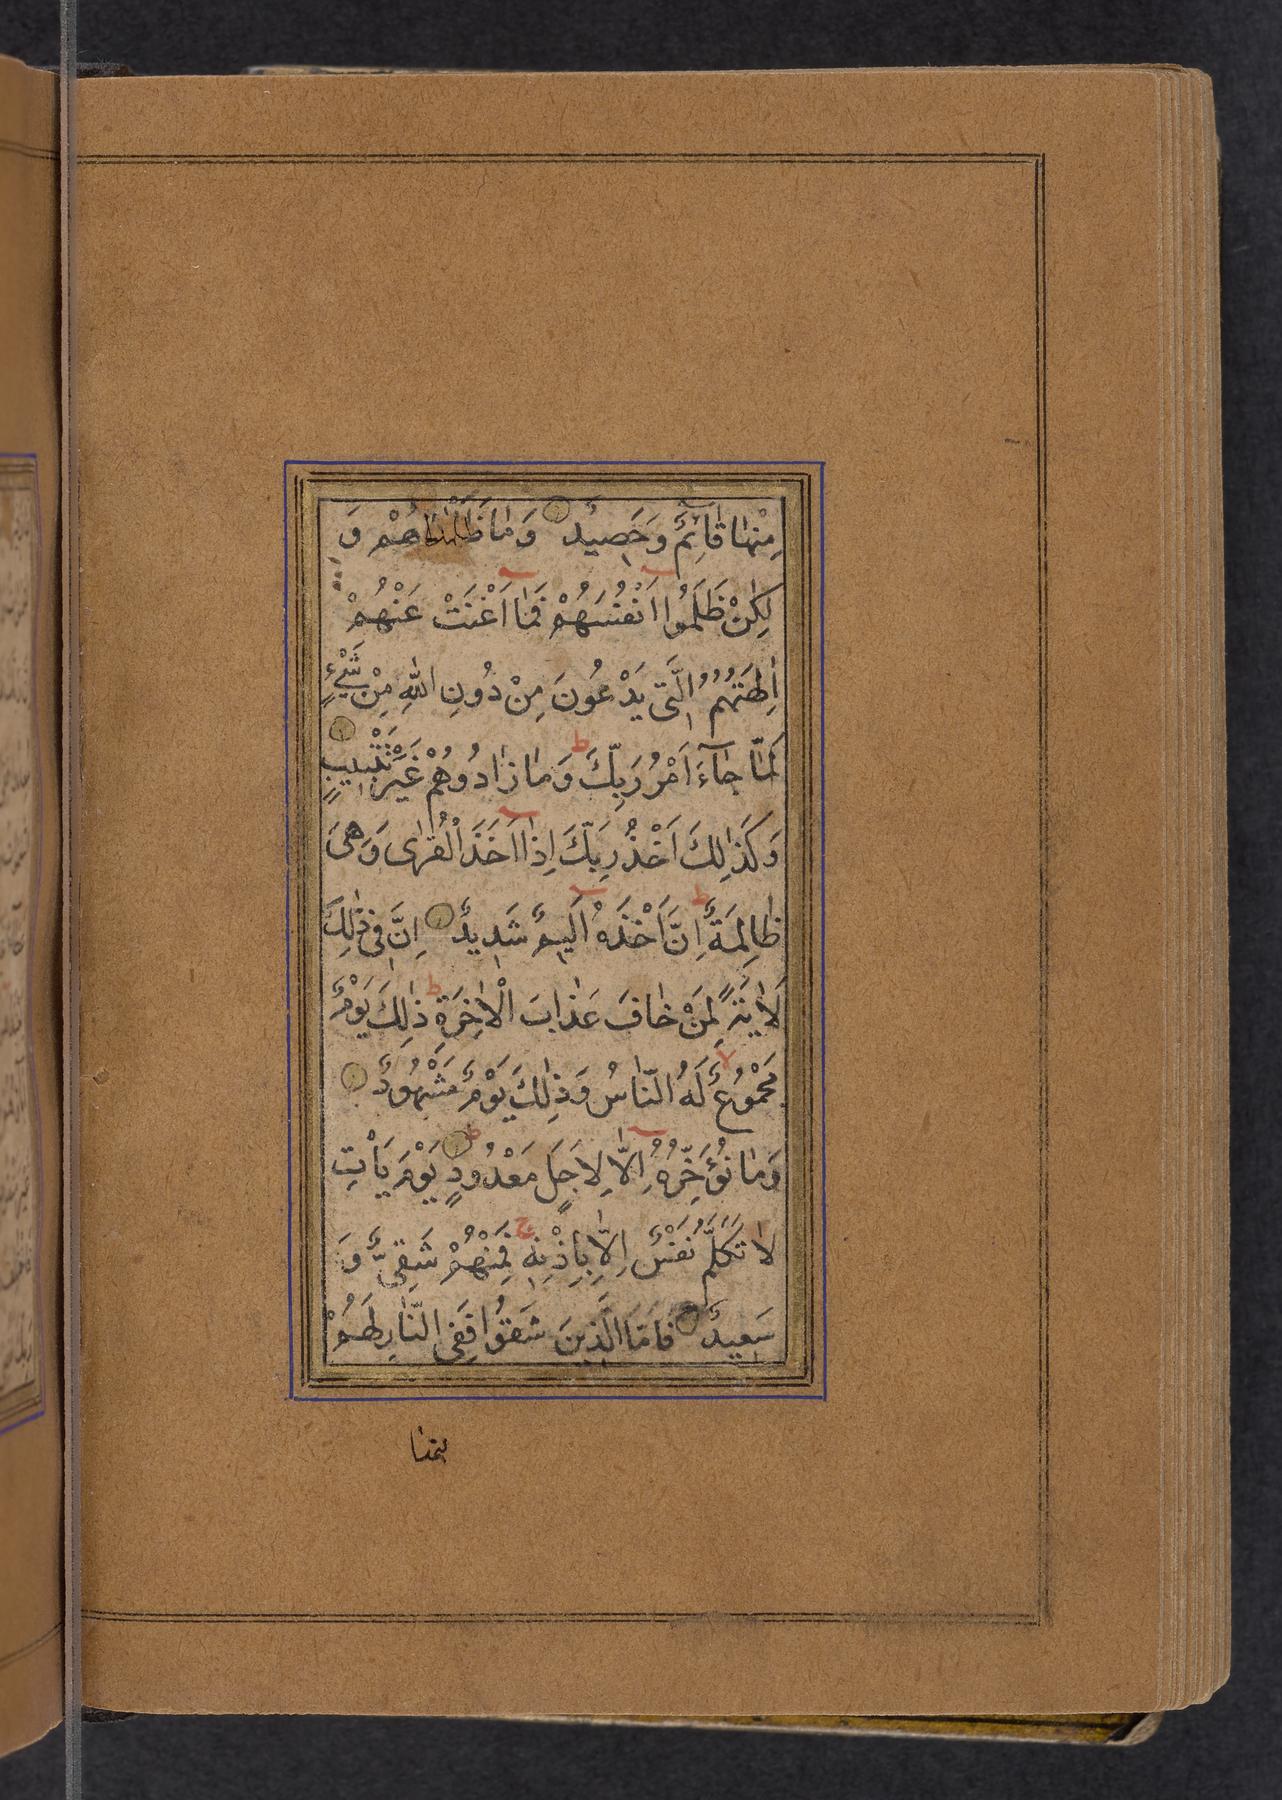 مِنْهَا قَائِمٌ وَحَصِيدٌ وَمَا ظَلَمْنَاهُمْ وَ
لَكِنْ ظَلَمُوا اَنْفُسَهُمْ فَمَا اَغْنَتْ عَنْهُمْ
اٰلِهَتُهُمُ الَّتِى يَدْعُونَ مِنْ دُونِ اللّٰهِ مِنْ شَىْءٍ
لَمَّا جَاءَ اَمْرُ رَبِّكَ ط وَمَا زَادُوهُمْ غَيْرَ تَتْبِيبٍ
وَكَذٰلِكَ اَخْذُ رَبِّكَ اِذَا اَخَذَ الْقُرٰى وَهِىَ
ظَالِمَةٌ ط اِنَّ اَخْذَهُ اَلِيمٌ شَدِيدٌ اِنَّ فِى ذٰلِكَ
لَاٰيَةً لِمَنْ خَافَ عَذَابَ الْاٰخِرَةِ ط ذٰلِكَ يَوْمٌ
مَجْمُوعٌ لا لَهُ النَّاسُ وَذٰلِكَ يَوْمٌ مَشْهُودٌ
وَمَا نُؤَخِّرُهُ اِلَّا لِاَجَلٍ مَعْدُودٍ ط يَوْمَ يَاْتِ
لَا تَكَلَّمُ نَفْسٌ اِلَّا بِاِذْنِهِ ج فَمِنْهُمْ شَقِىٌّ وَ
سَعِيدٌ فَاَمَّا الَّذِينَ شَقُوا فَفِى النَّارِ لَهُمْ